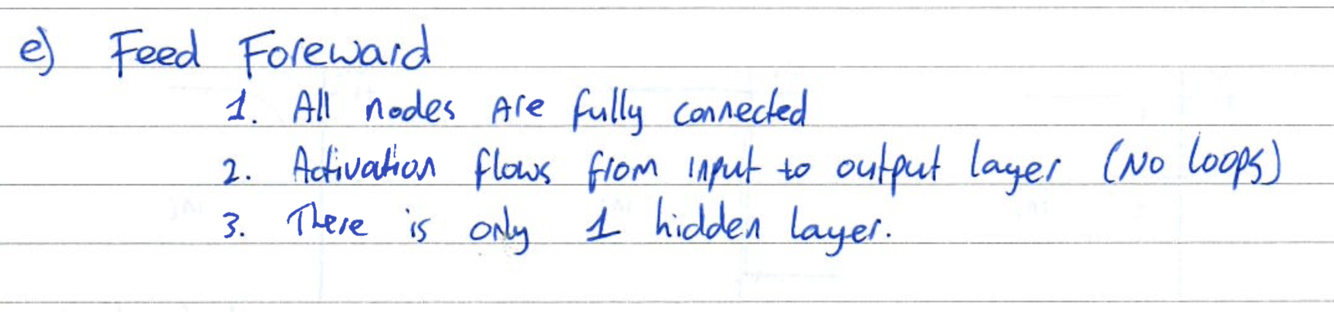 e) Feed Foreward
1. All nodes are fully connected
2. Activation flows from input to output layer (No loops)
3. There is only 1 hidden layer.